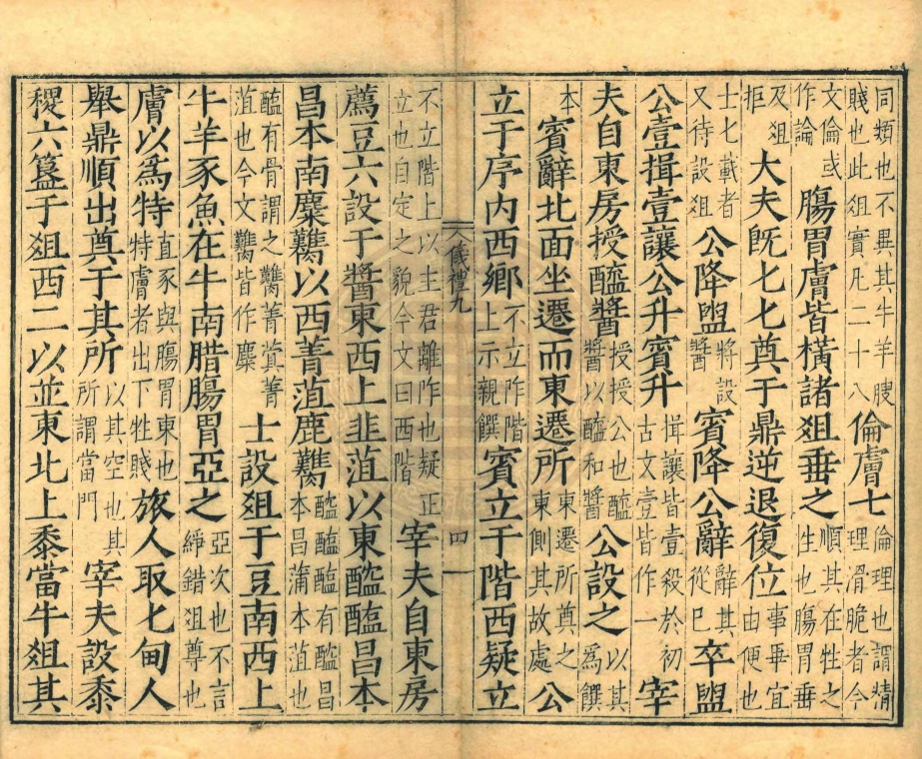 同類也不異其牛羊腴
賤也此俎實凡二十八
倫膚七
倫理也謂精
理滑脆者今
文倫或
作論
腸胃膚皆橫諸俎垂之
順其在牲之
性也腸胃垂
及俎
拒
大夫既匕匕奠于鼎逆退復位
事畢宜
由便也
士匕載者
又待設俎
公降盥
將設
醬
賓降公辭
辭其
從已
卒盥
公壹揖壹讓公升賓升
揖讓皆壹殺於初
古文壹皆作一
宰
夫自東房授醯醬
授授公也醯
醬以醯和醬
公設之
以其
爲饌
本
賓辭北面坐遷而東遷所
東遷所奠之
東側其故處
公
立于序內西鄉
不立阼階
上示親饌
賓立于階西疑立
儀禮九
四
不立階上以主君離阼也疑正
立也自定之貌今文曰西階
宰夫自東房
薦豆六設于醬東西上韭菹以東醓醢昌本
昌本南麋臡以西菁菹鹿臡
醓醢醢有醓昌
本昌蒲本菹也
醢有骨謂之臡菁蓂菁
菹也今文臡皆作麋
士設俎于豆南西上
牛羊豕魚在牛南腊腸胃亞之
亞次也不言
綪錯俎尊也
膚以爲特
直豕與腸胃東也
特膚者出下牲賤
旅人取匕甸人
舉鼎順出奠于其所
以其空也其
所謂當門
宰夫設黍
稷六簋于俎西二以並東北上黍當牛俎其